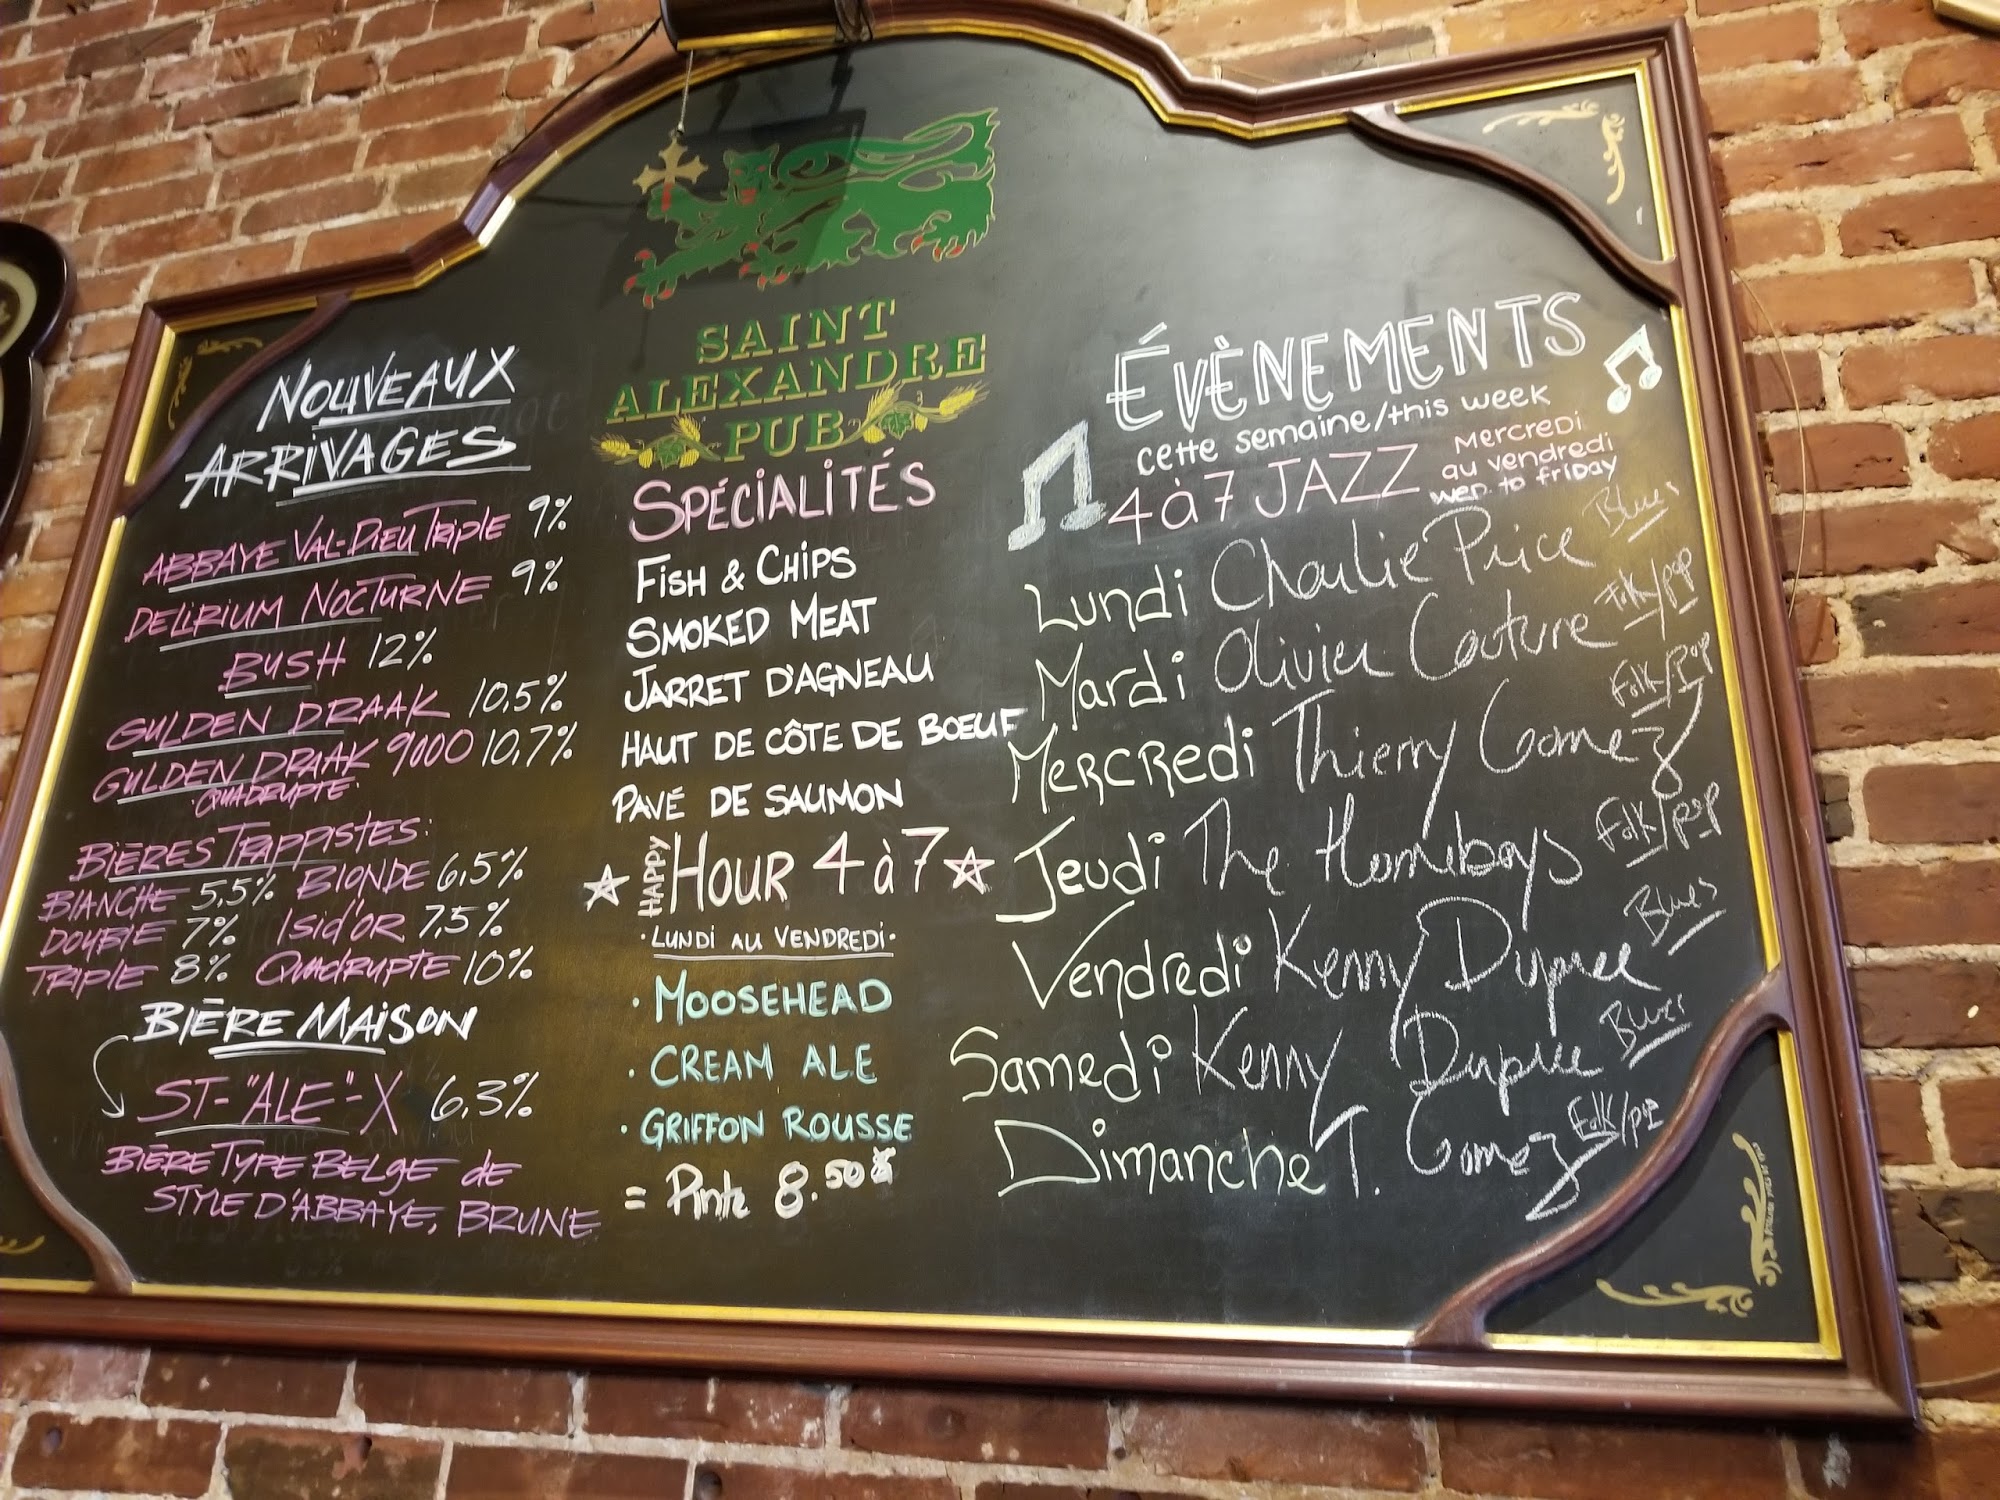 SAINT
ALEXANDRE
PUB
NOUVEAUX
ARRIVAGES
ABBAYE VAL-DIEU TRIPLE 9%
DELIRIUM NOCTURNE 9%
BUSH 12%
GULDEN DRAAK 10,5%
GULDEN DRAAK 9000 10,7%
QUADRUPTE
BIÈRES TRAPPISTES:
BLANCHE 5,5% BLONDE 6,5%
DOUBLE 7% ISID'OR 7,5%
TRIPLE 8% QUADRUPTE 10%
BIÈRE MAISON
ST-"ALE"-X 6,3%
BIÈRE TYPE BELGE de
STYLE D'ABBAYE, BRUNE
SPÉCIALITÉS
FISH & CHIPS
SMOKED MEAT
JARRET D'AGNEAU
HAUT DE CÔTE DE BOEUF
PAVÉ DE SAUMON
HAPPY HOUR 4 à 7
·LUNDI AU VENDREDI·
· MOOSEHEAD
· CREAM ALE
· GRIFFON ROUSSE
= Pinte 8.50$
ÉVÈNEMENTS
cette semaine/this week
4 à 7 JAZZ
Mercredi
au vendredi
wed. to friday
Lundi Charlie Price Blues
Mardi Olivier Couture Folk/pop
Mercredi Thierry Gomez Folk/Pop
Jeudi The Homeboys Folk/pop
Vendredi Kenny Dupree Blues
Samedi Kenny Dupree Blues
Dimanche T. Gomez Folk/pop